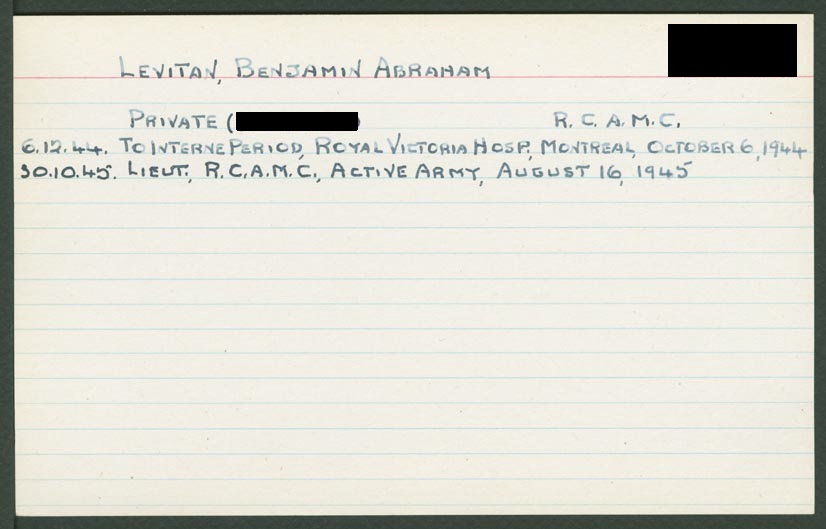 LEVITAN, BENJAMIN ABRAHAM
PRIVATE ( ) R. C. A. M. C.
6.12.44. TO INTERNE PERIOD, ROYAL VICTORIA HOSP., MONTREAL, OCTOBER 6, 1944
30.10.45. LIEUT., R.C.A.M.C., ACTIVE ARMY, AUGUST 16, 1945